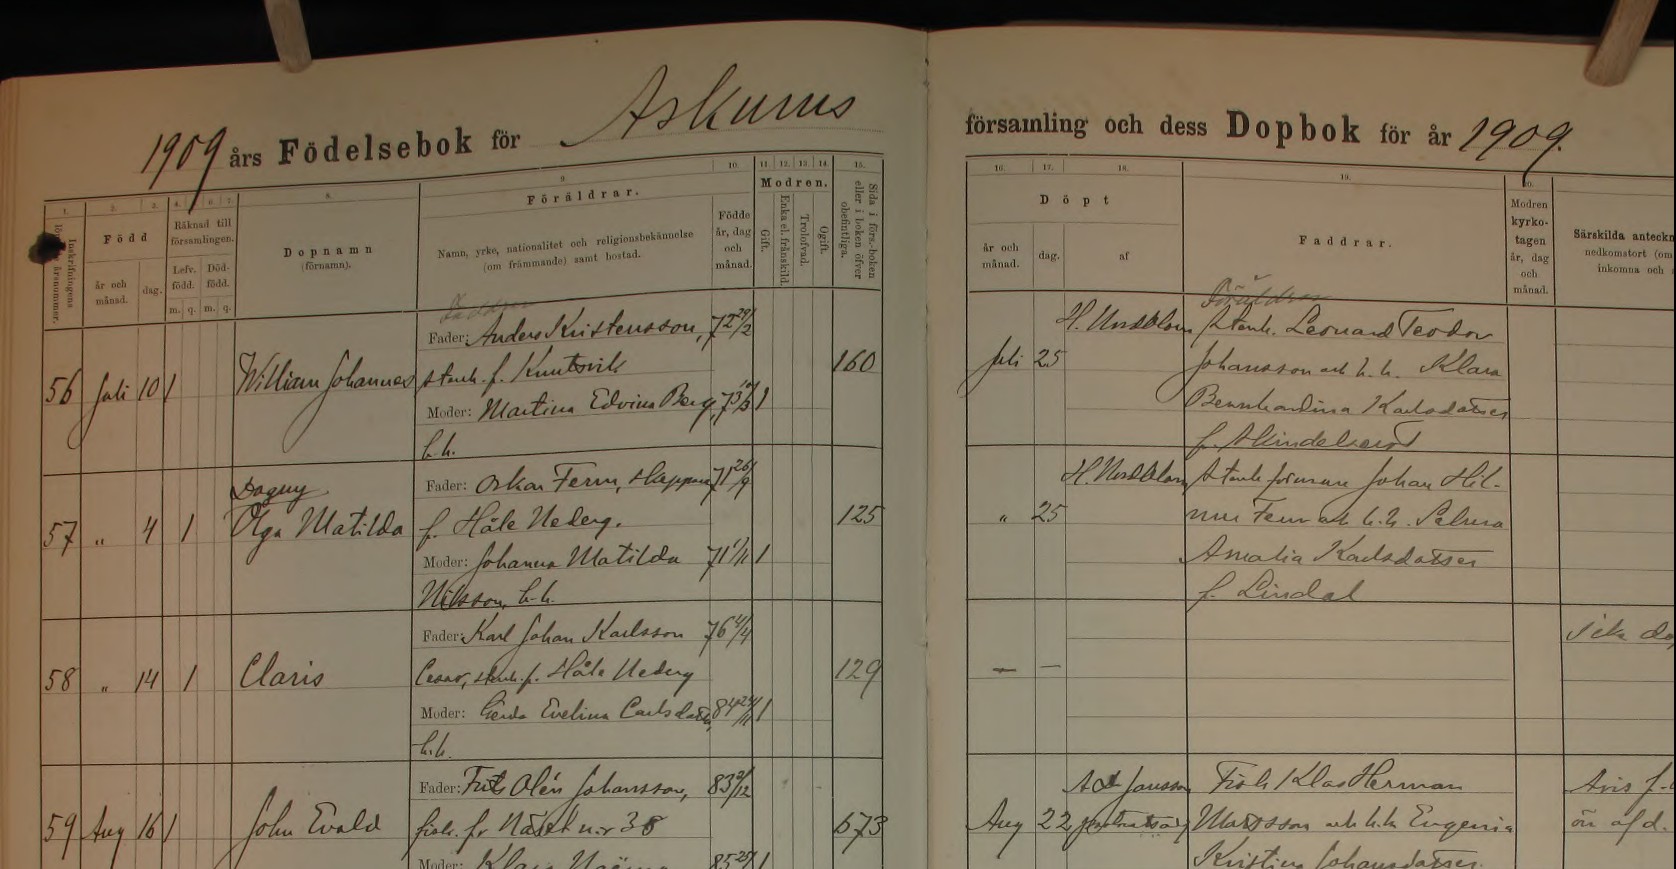 1909 års Födelsebok för Askums
församling och dess Dopbok för år 1909.
1. 2. 3. 4. 6. 7. 8. 9. 10. 11. 12. 13. 14. 15.
16. 17. 18. 19. 20.
Inskrifningens årsnummer.
Född
år och månad.
dag.
Räknad till församlingen.
Lefv. född.
Död-född.
m. q. m. q.
Dopnamn
(förnamn).
Föräldrar.
Namn, yrke, nationalitet och religionsbekännelse
(om främmande) samt bostad.
Födde år, dag och månad.
Modren.
Gift.
Enka el. frånskild.
Trolofvad.
Ogift.
Sida i förs.-boken eller i boken öfver obefintliga.
Döpt
år och månad.
dag.
af
Faddrar.
Modren kyrko-tagen år, dag och månad.
Särskilda anteckn
nedkomstort (om
inkomna och
Föräldrar
56 Juli 10 1 William Johannes
Fader: Anders Kristensson, 72 29/2
stenh. f. Knutsvik 160
Moder: Martina Edvina Berg, 73 1
h.h.
Juli 25 H. Nordblom Stenh. Leonard Teodor
Johansson och h. h. Klara
Bernhardina Karlsdotter
f.
57 " 4 1 Dagny
Olga Matilda
Fader: Oskar Ferm, Skeppare 71 26/9
f. Håle Nederg. 125
Moder: Johanna Matilda 71 1/11 1
Nilsson, h.h.
" 25 H. Nordblom Stenh. Johan Hil-
mer Ferm och h.h. Selma
Amalia Karlsdotter
f. Lindal
58 " 14 1 Claris
Fader: Karl Johan Karlsson 76 /4
stenh. f. Håle Nederg 129
Moder: Gerda Evelina Carlsdotter, 84 /11 1
h.h.
— —
Icke dö
59 Aug 16 1 John Evald
Fader: Olén Johansson, 83 /12
fisk. fr Näset n:r 38 673
Moder: Klara 85 1
Aug 22 Jansson Fisk. Klas Herman
Matsson och h.h. Eugenia
Kristina Johansdotter.
Avis f.
ön af d.